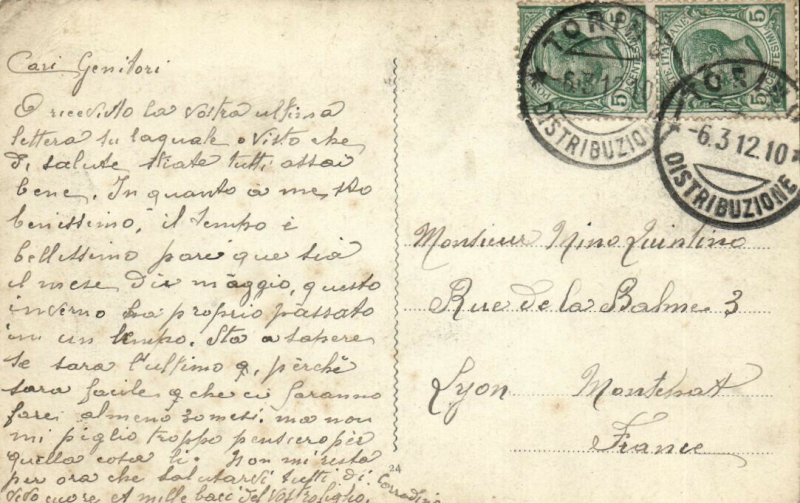 Cari Genitori
O ricevuto la vostra ultima
lettera su laquale o visto che
di salute state tutti assai
bene. In quanto a me sto
benissimo, il tempo è
bellissimo pare que sia
il mese di maggio, questo
inverno ha proprio passato
in un lampo. Sta a sapere
se sara l'ultimo o, perchè
sara facile che ci faranno
fare almeno 30 mesi. ma non
mi piglio troppo pensiero per
quella cosa li. Non mi resta
per ora che salutarvi tutti di
vivo cuore e mille baci del vostro figlio.
24
TORINO
-6.3.12.10
DISTRIBUZIONE
TORINO
-6.3.12.10*
DISTRIBUZIONE
5 5
5 5
Monsieur Nino Quintino
Rue de la Balme 3
Lyon Montchat
France